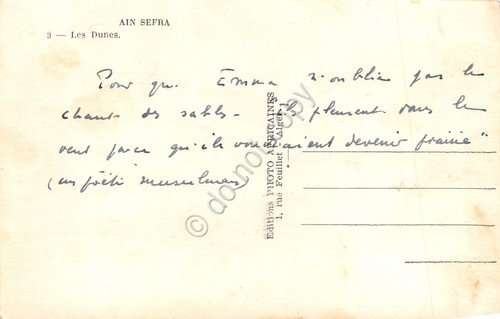 AIN SEFRA
3 — Les Dunes.
Pour que Emma n'oublie pas le
chant des sables - ils pleurent dans le
vent parce qu'ils voudraient devenir prairie"
(un poète musulman)
Editions PHOTO AFRICAINES
1, rue Feuillet - Alger
do not copy